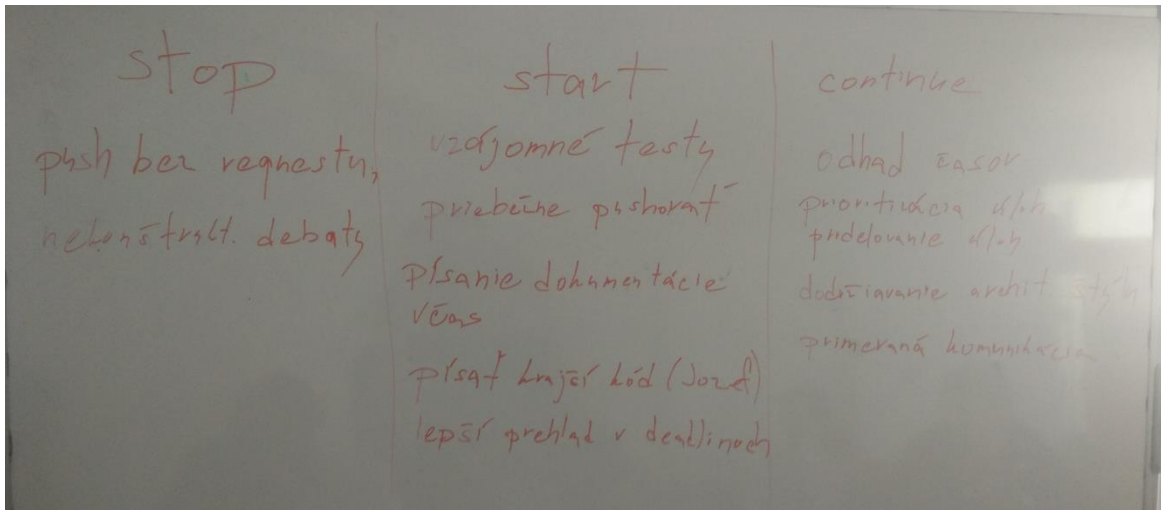 stop
push bez requestu,
nekonštrukt. debaty
start
vzájomné testy
priebežne pushovať
písanie dokumentácie
včas
písať krajší kód (Jozef)
lepší prehlad v deadlinoch
continue
odhad časov
prioritizácia úloh
pridelovanie úloh
dodržiavanie archit. štýlu
primeraná komunikácia